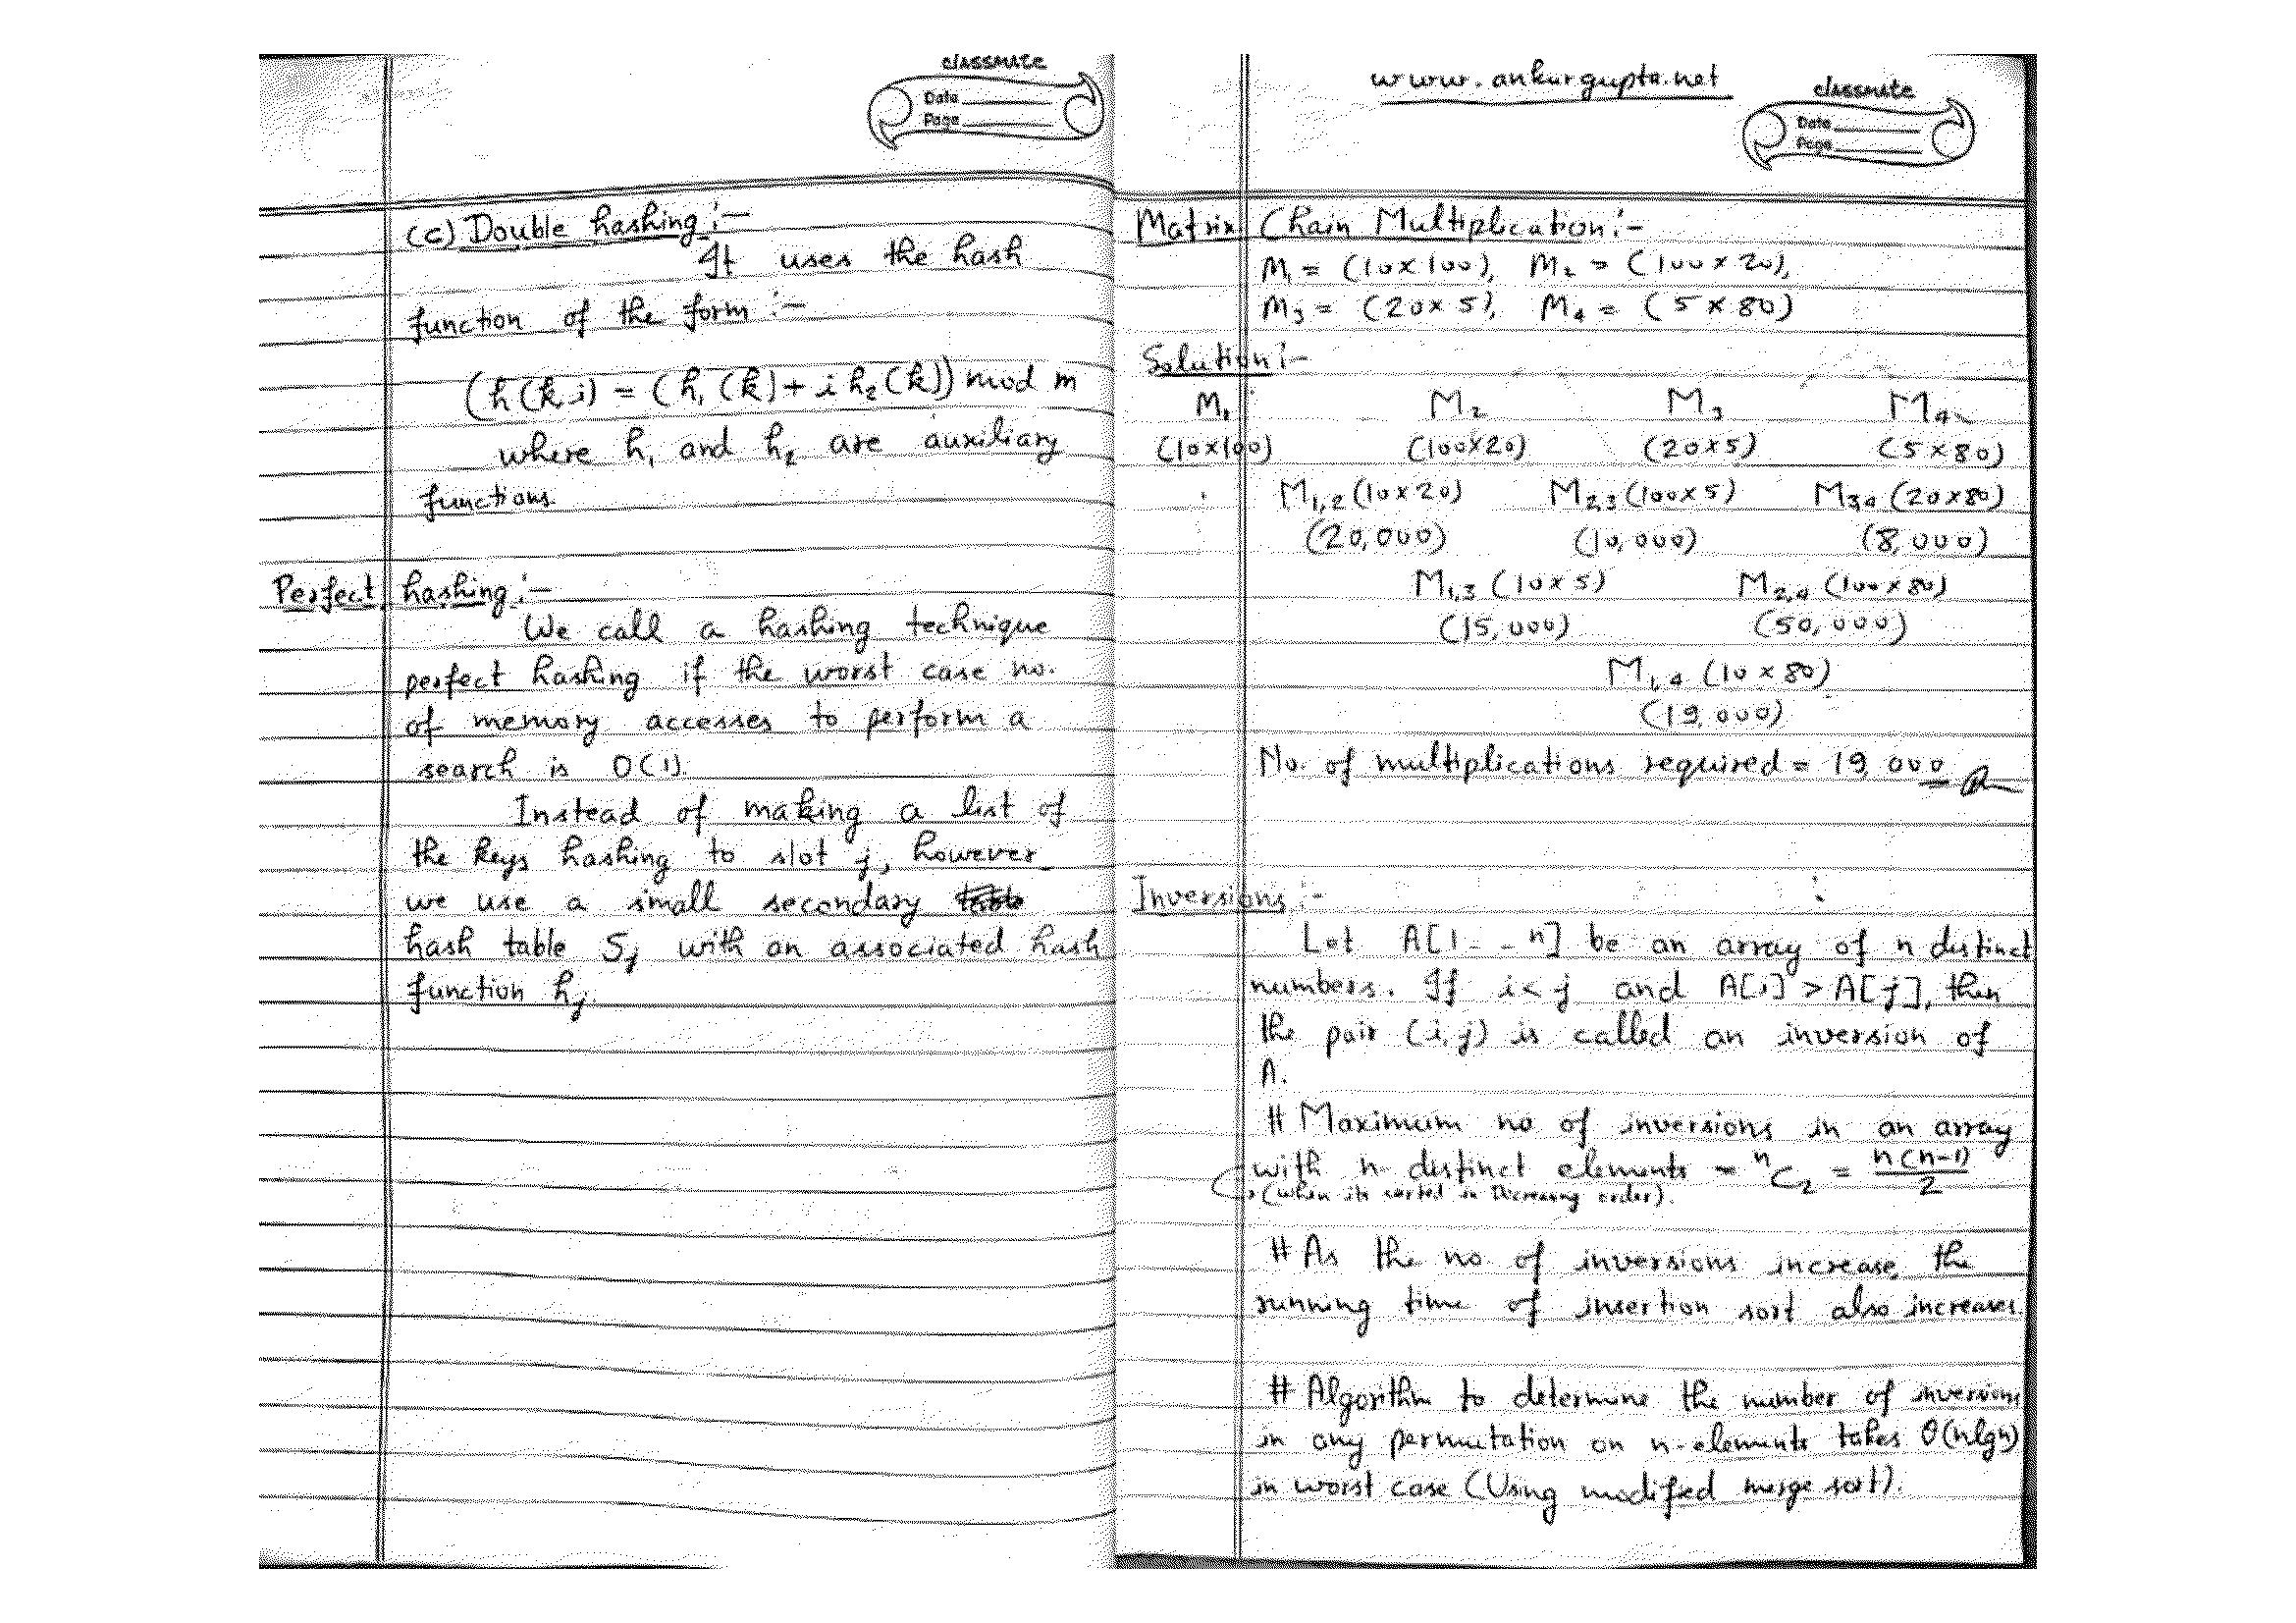 classmate
Date
Page
(c) Double hashing :-
It uses the hash
function of the form :-
(h(k,i) = (h₁(k) + i h₂(k)) mod m
where h₁ and h₂ are auxiliary
functions.
Perfect hashing :-
We call a hashing technique
perfect hashing if the worst case no.
of memory accesses to perform a
search is O(1).
Instead of making a list of
the keys hashing to slot j, however
we use a small secondary
hash table Sj with an associated hash
function hj.
www.ankurgupta.net
classmate
Date
Page
Matrix Chain Multiplication :-
M₁ = (10×100), M₂ = (100×20),
M₃ = (20×5), M₄ = (5×80)
Solution :-
M₁ M₂ M₃ M₄
(10×100) (100×20) (20×5) (5×80)
M₁,₂ (10×20) M₂,₃ (100×5) M₃₄ (20×80)
(20,000) (10,000) (8,000)
M₁,₃ (10×5) M₂,₄ (100×80)
(15,000) (50,000)
M₁,₄ (10×80)
(19,000)
No. of multiplications required = 19,000
Inversions :-
Let A[1 - - n] be an array of n distinct
numbers. If i < j and A[i] > A[j], then
the pair (i,j) is called an inversion of
A.
# Maximum no of inversions in an array
with n distinct elements = ⁿC₂ = n(n-1)/2
(when its sorted in Decreasing order).
# As the no of inversions increase, the
running time of insertion sort also increases.
# Algorithm to determine the number of inversions
in any permutation on n-elements takes θ(nlgn)
in worst case (Using modified merge sort).